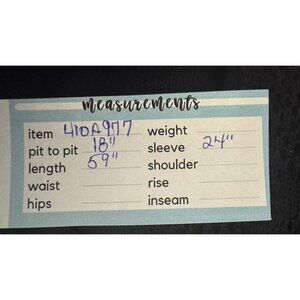 measurements
item 410A977 weight
pit to pit 18" sleeve 24"
length 59" shoulder
waist rise
hips inseam